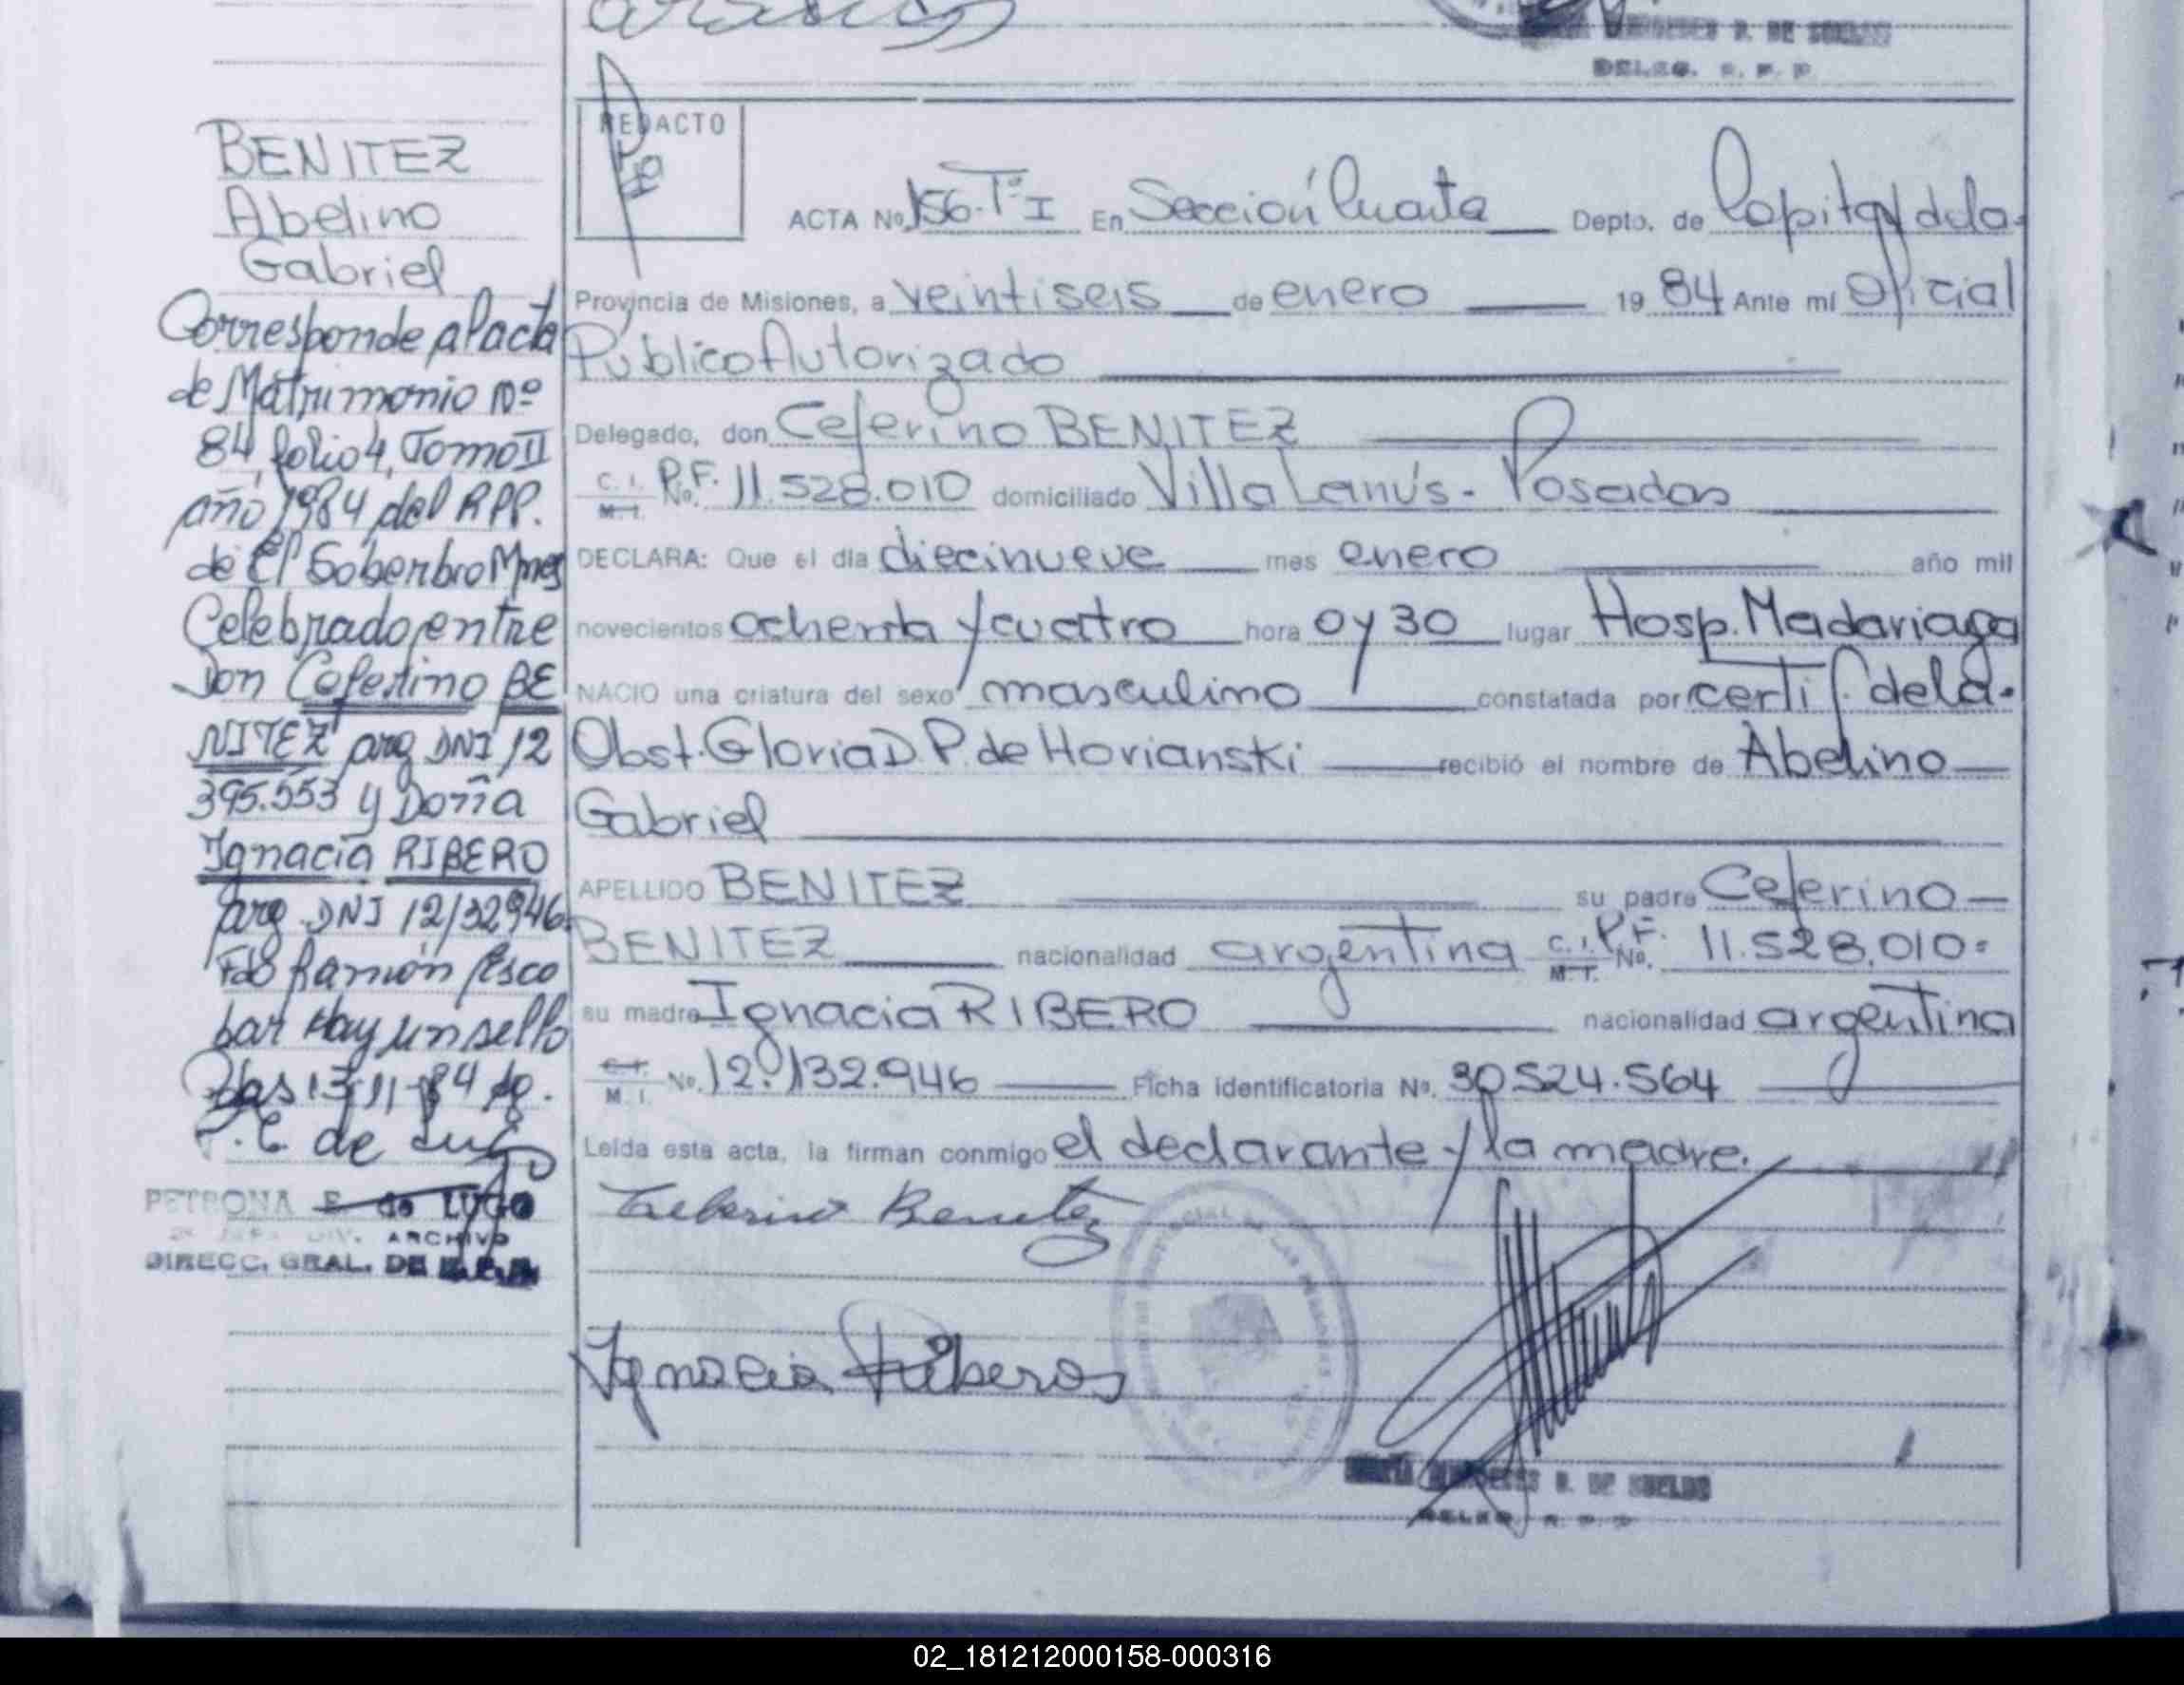 DELEG. R. P. P
BENITEZ
Abelino
Gabriel
Corresponde al acta
de Matrimonio Nº
84, folio 4, Tomo II
año 1984 del RPP.
de El Soberbio Mnes
Celebrado entre
Don Ceferino BE
NITEZ arg DNI 12
395.553 y Doña
Ignacia RIBERO
arg. DNI 12132946.
Fdo Ramón Esco
bar Hay un sello
Pdas 13-11-84
de Lugo
PETRONA E. de LUGO
DIV. ARCHIVO
DIRECC. GRAL. DE
REDACTO
ACTA Nº 156-Tº I En Sección Cuarta Depto. de Capital de la
Provincia de Misiones, a veintiseis de enero 19 84 Ante mí Oficial
Público Autorizado
Delegado, don Ceferino BENITEZ
C. I. M. I. P.F. No. 11.528.010 domiciliado Villa Lanús - Posadas
DECLARA: Que el día diecinueve mes enero año mil
novecientos ochenta y cuatro hora 0 y 30 lugar Hosp. Madariaga
NACIO una criatura del sexo masculino constatada por certif. de la
Obst. Gloria D P. de Horianski recibió el nombre de Abelino
Gabriel
APELLIDO BENITEZ su padre Ceferino
BENITEZ nacionalidad argentina C. I. M. I. P.F. No. 11.528.010=
su madre Ignacia RIBERO nacionalidad argentina
C. I. M. I. No. 12.132.946 Ficha identificatoria Nº. 30.524.564
Leída esta acta, la firman conmigo el declarante y la madre.
Ceferino Benitez
Ignacia Riberos
DE SUELDO
DELEG. R. P. P
02_181212000158-000316